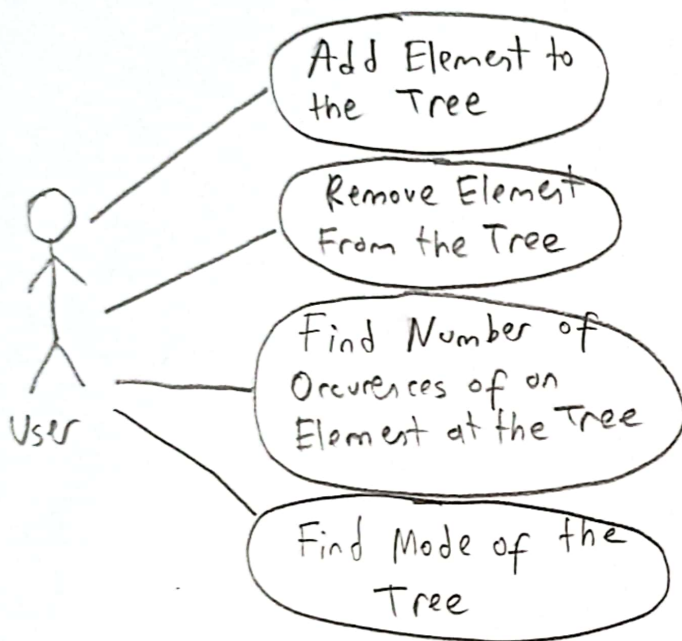 Add Element to
the Tree
Remove Element
From the Tree
Find Number of
Orcurences of on
Element at the Tree
User
Find Mode of the
Tree